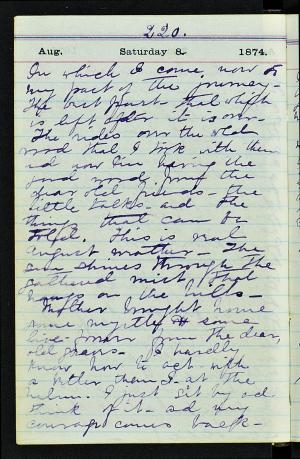 220.
Aug. Saturday 8. 1874.
In which I come now to
my part of the journey -
The best part - that which
is left after it is over -
The rides over the old
road that I took with them
and now I'm having the
good words from the
dear old friends - the
little talks - and the
things that can be
This is real
August weather - The
sun shines through the
gathered mist that
hangs on the hills -
Mother brought home
some myrtle & some
from the dear
old I hardly
know how to act with
a letter them I at the
helm. I just sit by and
think of it - and my
courage comes back -